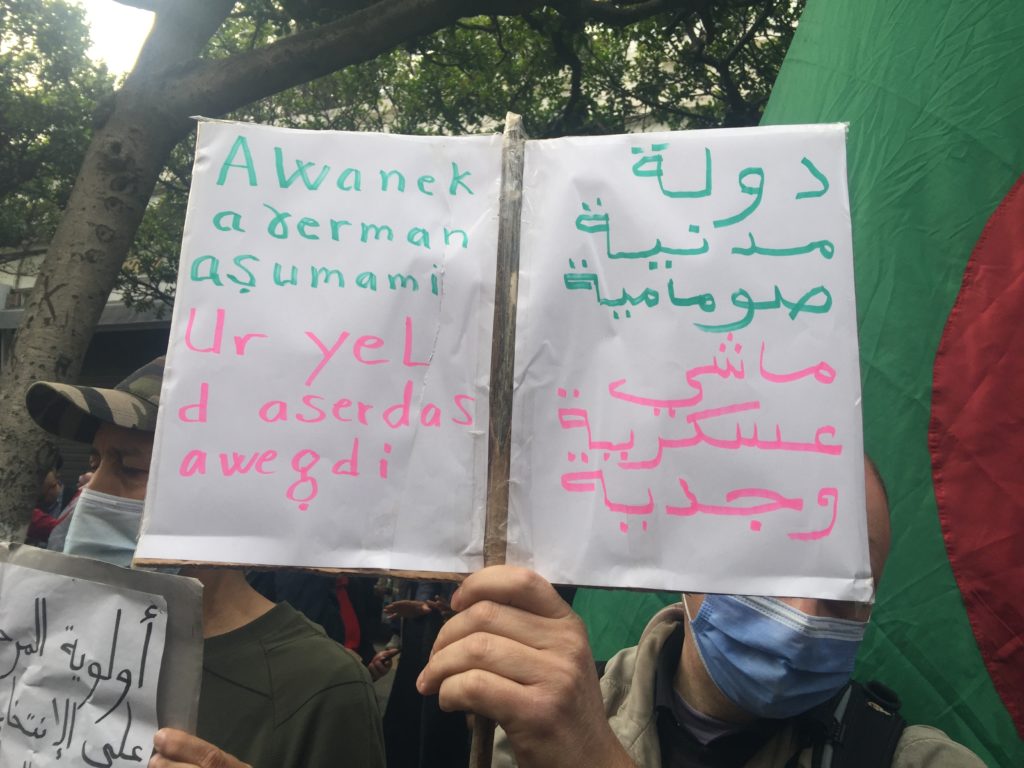 AWanek
aɣerman
aṣumami
Ur yeL
d aserdas
aweg̣di
دولة
مدنية
صومامية
ماشي
عسكرية
وجدية
أولوية
على